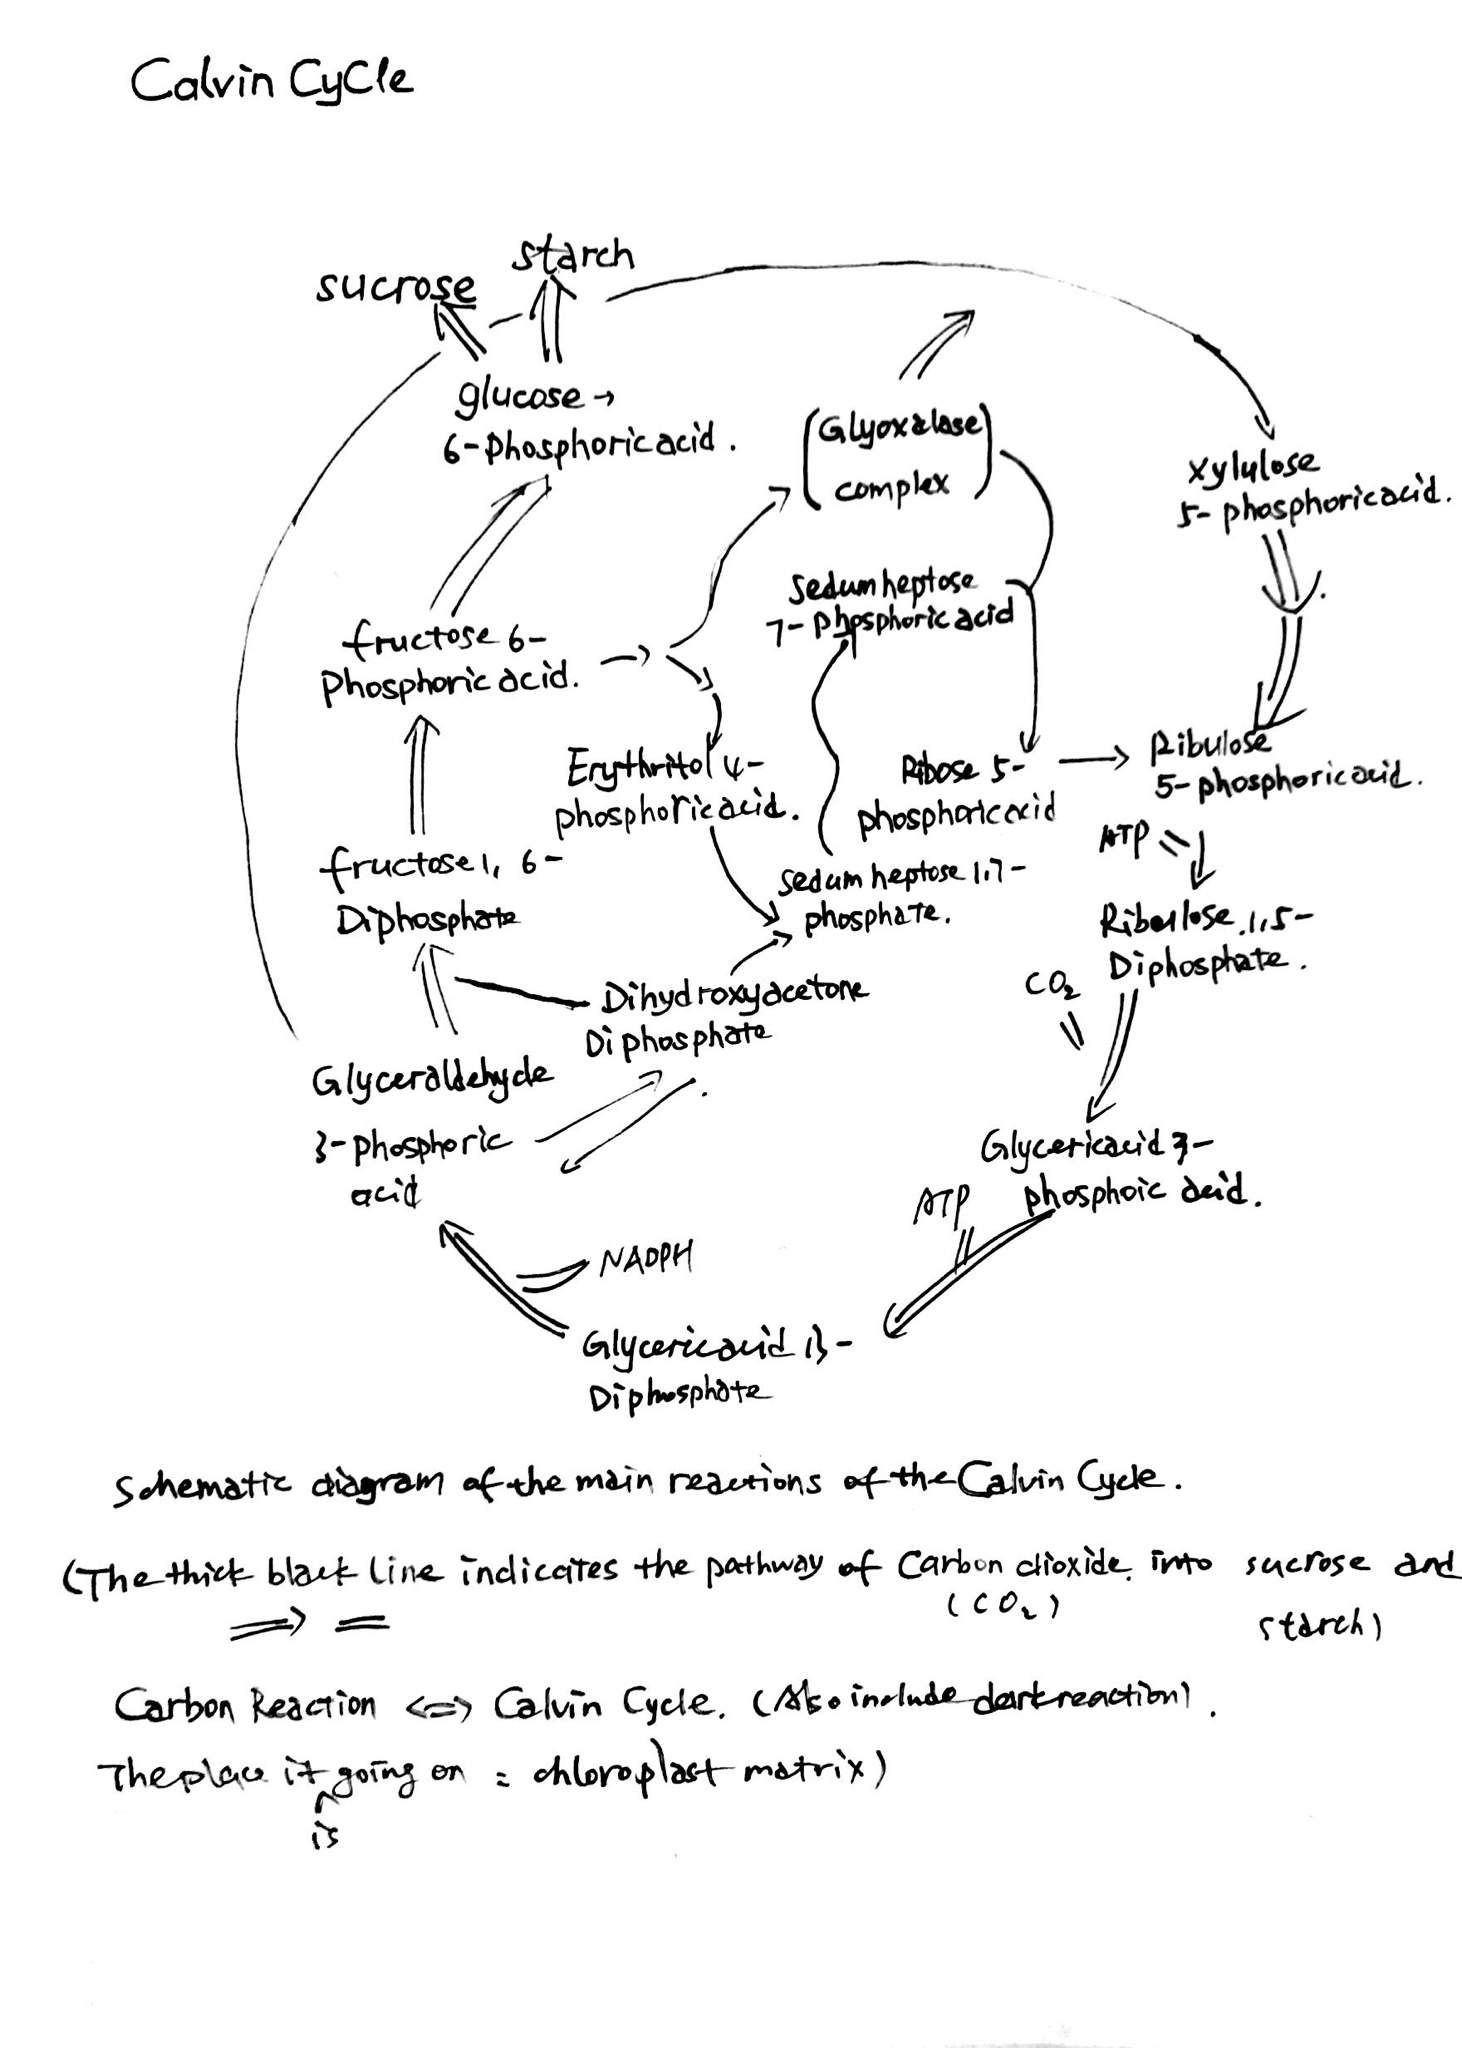 Calvin Cycle
starch
sucrose
glucose →
6-phosphoric acid.
(Glyoxalase
complex)
xylulose
5-phosphoric acid.
Sedumheptose
7-phosphoric acid
fructose 6-
Phosphoric acid.
Erythritol 4-
phosphoric acid.
Ribose 5-
phosphoric acid
Ribulose
5-phosphoric acid.
ATP
fructose 1, 6-
Diphosphate
Sedumheptose 1,7-
phosphate.
Ribulose 1,5-
Diphosphate.
CO₂
Dihydroxyacetone
Diphosphate
Glyceraldehyde
3-phosphoric
acid
Glycericacid 3-
phosphoic acid.
ATP
NADPH
Glycericacid 1,3-
Diphosphate
Schematic diagram of the main reactions of the Calvin Cycle.
(The thick black line indicates the pathway of Carbon dioxide into sucrose and
⇒ = (CO₂) starch)
Carbon Reaction <=> Calvin Cycle. (Also include dark reaction).
The place it going on : chloroplast matrix)
is